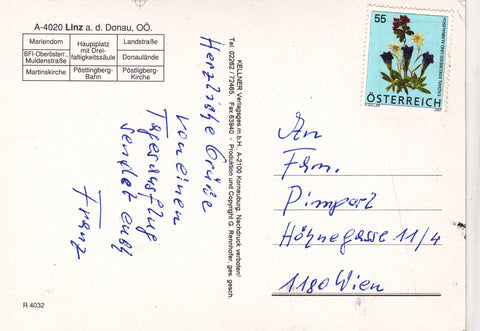 A-4020 Linz a. d. Donau, OÖ.
Mariendom
Hauptplatz mit Drei-faltigkeitssäule
Landstraße
BFI-Oberösterr., Muldenstraße
Donaulände
Martinskirche
Pöstlingberg-Bahn
Pöstligberg-Kirche
Herzliche Grüße
von einen
Tagesausflug
sendet euch
Franz
KELLNER Verlagsges.m.b.H., A-2100 Korneuburg, Nachdruck verboten!
Tel. 02262 / 72465, Fax 63940 - Produktion und Copyright G. Rennhofer, ges. gesch.
55
ÖSTERREICH
An
Fam.
Pimparl
Höhnegasse 11/4
1180 Wien
R 4032